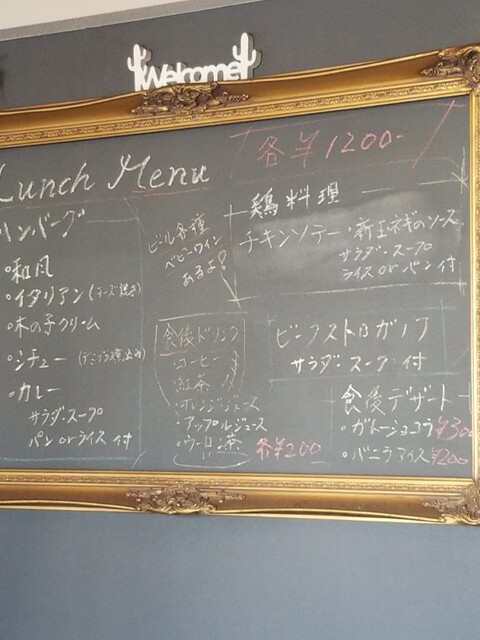 Welcome
Lunch Menu
各¥1200-
ハンバーグ
・和風
・イタリアン(チーズ焼き)
・木の子クリーム
・シチュー(デミグラス煮込み)
・カレー
サラダ・スープ
パン or ライス 付
ビール各種
ベビーワイン
あるよ!
食後ドリンク
コーヒー
紅茶
・オレンジジュース
・アップルジュース
・ウーロン茶
各¥200
鶏料理
チキンソテー・新玉ネギのソース
サラダ・スープ
ライス or パン 付
ビーフストロガノフ
サラダ・スープ 付
食後デザート
・ガトーショコラ ¥300
・バニラアイス ¥200